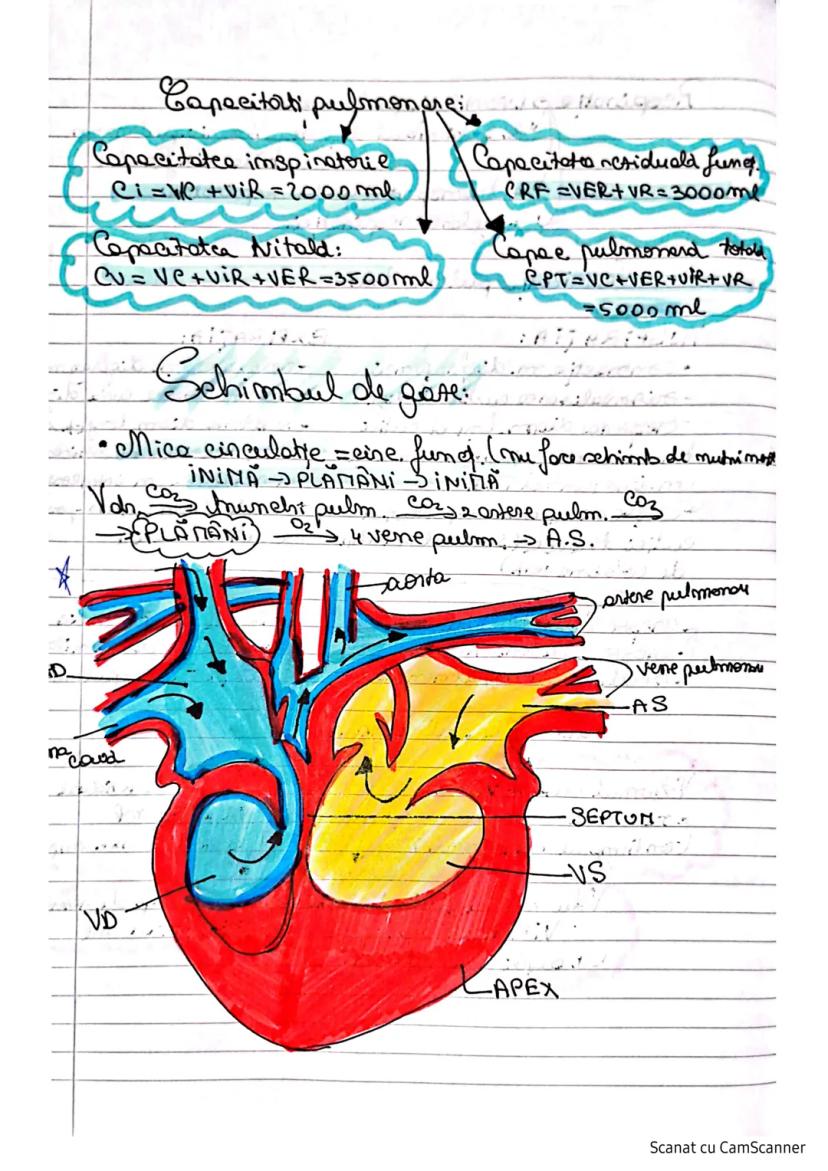 Capacități pulmonare:
Capacitatea inspiratorie
Ci = VC + ViR = 2000 ml
Capacitatea reziduală funcț.
CRF = VER + VR = 3000 ml
Capacitatea Vitală:
CV = VC + ViR + VER = 3500 ml
Capac pulmonară totală
CPT = VC + VER + ViR + VR
= 5000 ml
Schimbul de gaze:
• Mica circulație = circ. funcț. (nu face schimb de nutrimente
iNiMĂ → PLĂMÂNi → iNiMĂ
V dr. CO2 → trunchi pulm. CO2 → 2 artere pulm. CO2 →
→ PLĂMÂNi O2 → 4 vene pulm. → A.S.
aorta
artere pulmonare
vene pulmonare
D
AS
cavă
SEPTUM
VS
VD
APEX
Scanat cu CamScanner